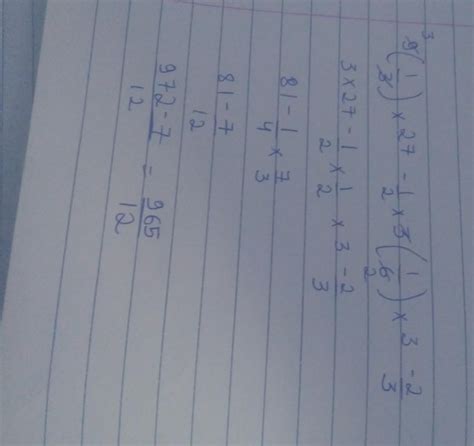 3 9(1/3) × 27 - 1/2 × 3(1/6) 2 × 3 -2/3
3×27 - 1/2 × 1/2 × 3 -2/3
81 - 1/4 × 7/3
81 - 7/12
972-7/12 = 965/12